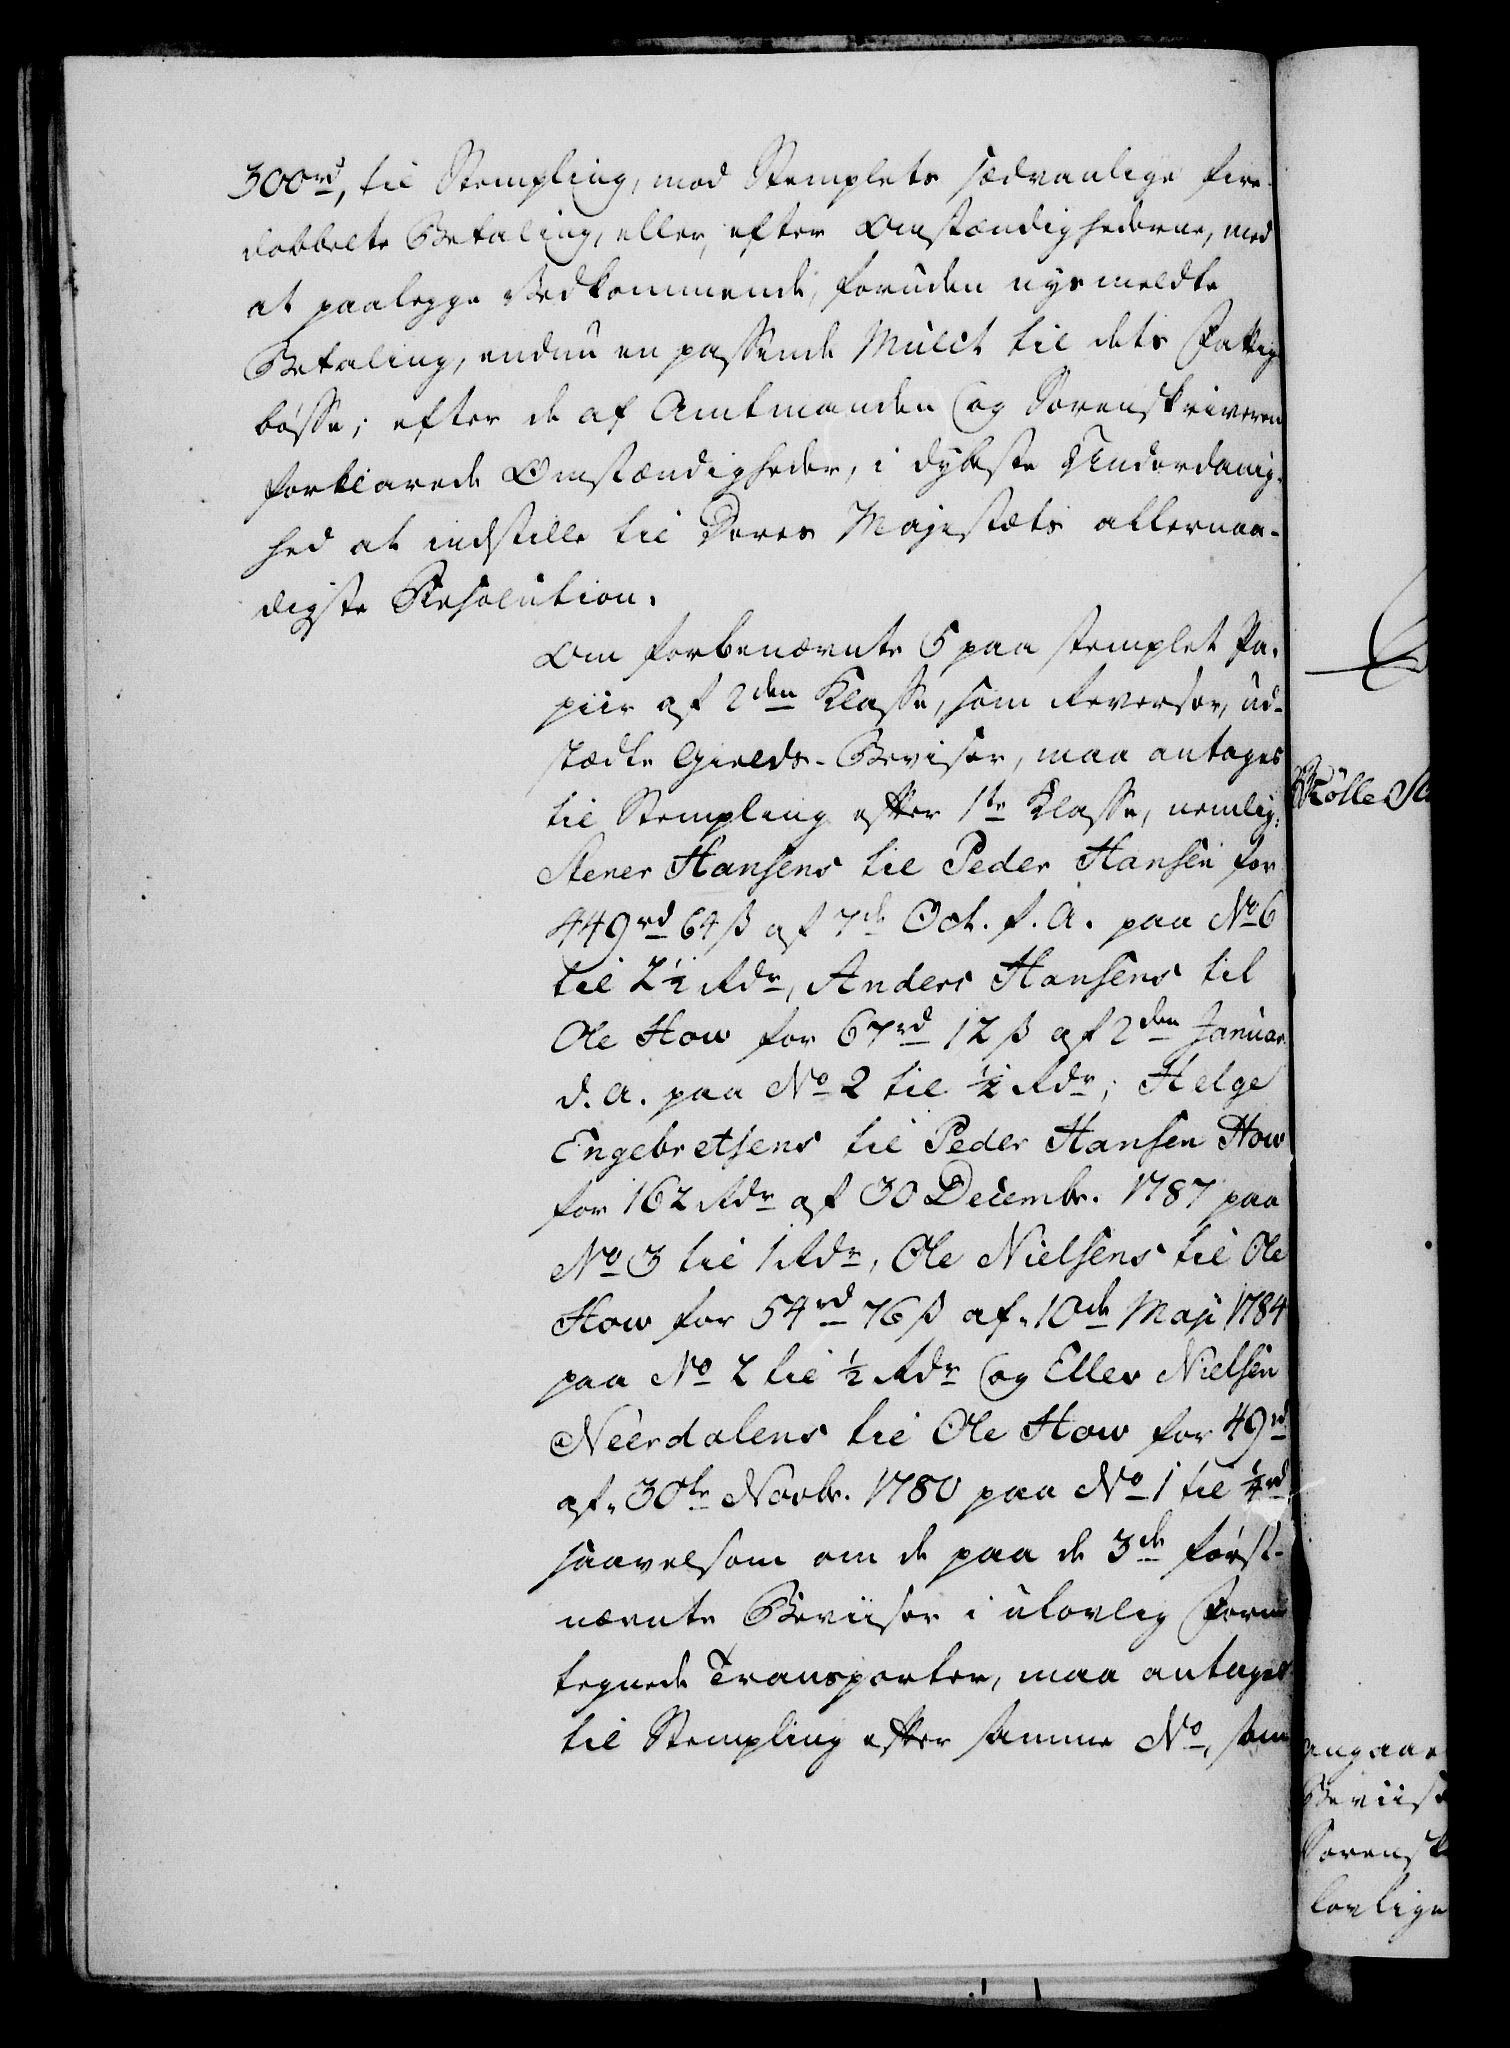 300rd, til Stempling, mod Stemplets sædvanlige fire-
dobbelte Betaling, eller, efter Omstændighederne, med
at paalegge Vedkommende, foruden nysmeldte
Betaling, endnu en passende Mulct til dets Fattig-
bøsse; efter de af Amtmanden og Sorenskriveren
forklarede Omstændigheder, i dybeste Underdanig-
hed at indstille til Deres Majestæts allernaa-
digste Resolution.
Om forbenævnte 5 paa stemplet Pa-
piir af 2den Klasse, som Reverser, ud-
stædte Gields-Beviser, maa antages
til Stempling efter 1te Klasse, nemlig:
Stener Hansens til Peder Hansen for
449rd 64 ß af 7de Oct. f. A. paa No 6
til 2½ Rdr, Anders Hansens til
Ole How for 67rd 12 ß af 2den Januar
d. A. paa No 2 til ½ Rdr; Helge
Engebretsens til Peder Hansen How
for 162 Rdr af 30 Decembr. 1787 paa
No 3 til 1 Rdr, Ole Nielsens til Ole
How for 54rd 76 ß af 10de Maji 1784
paa No 2 til ½ Rdr og Ellev Nielsen
Neerdalens til Ole How for 49rd
af 30te Novbr. 1780 paa No 1 til ¼rd
saavelsom om de paa de 3de først-
nævnte Beviiser i ulovlig Form
tegnede Transporter, maa antages
til Stempling efter samme No, som
angaae
Beviise
Sorensk
lovlige